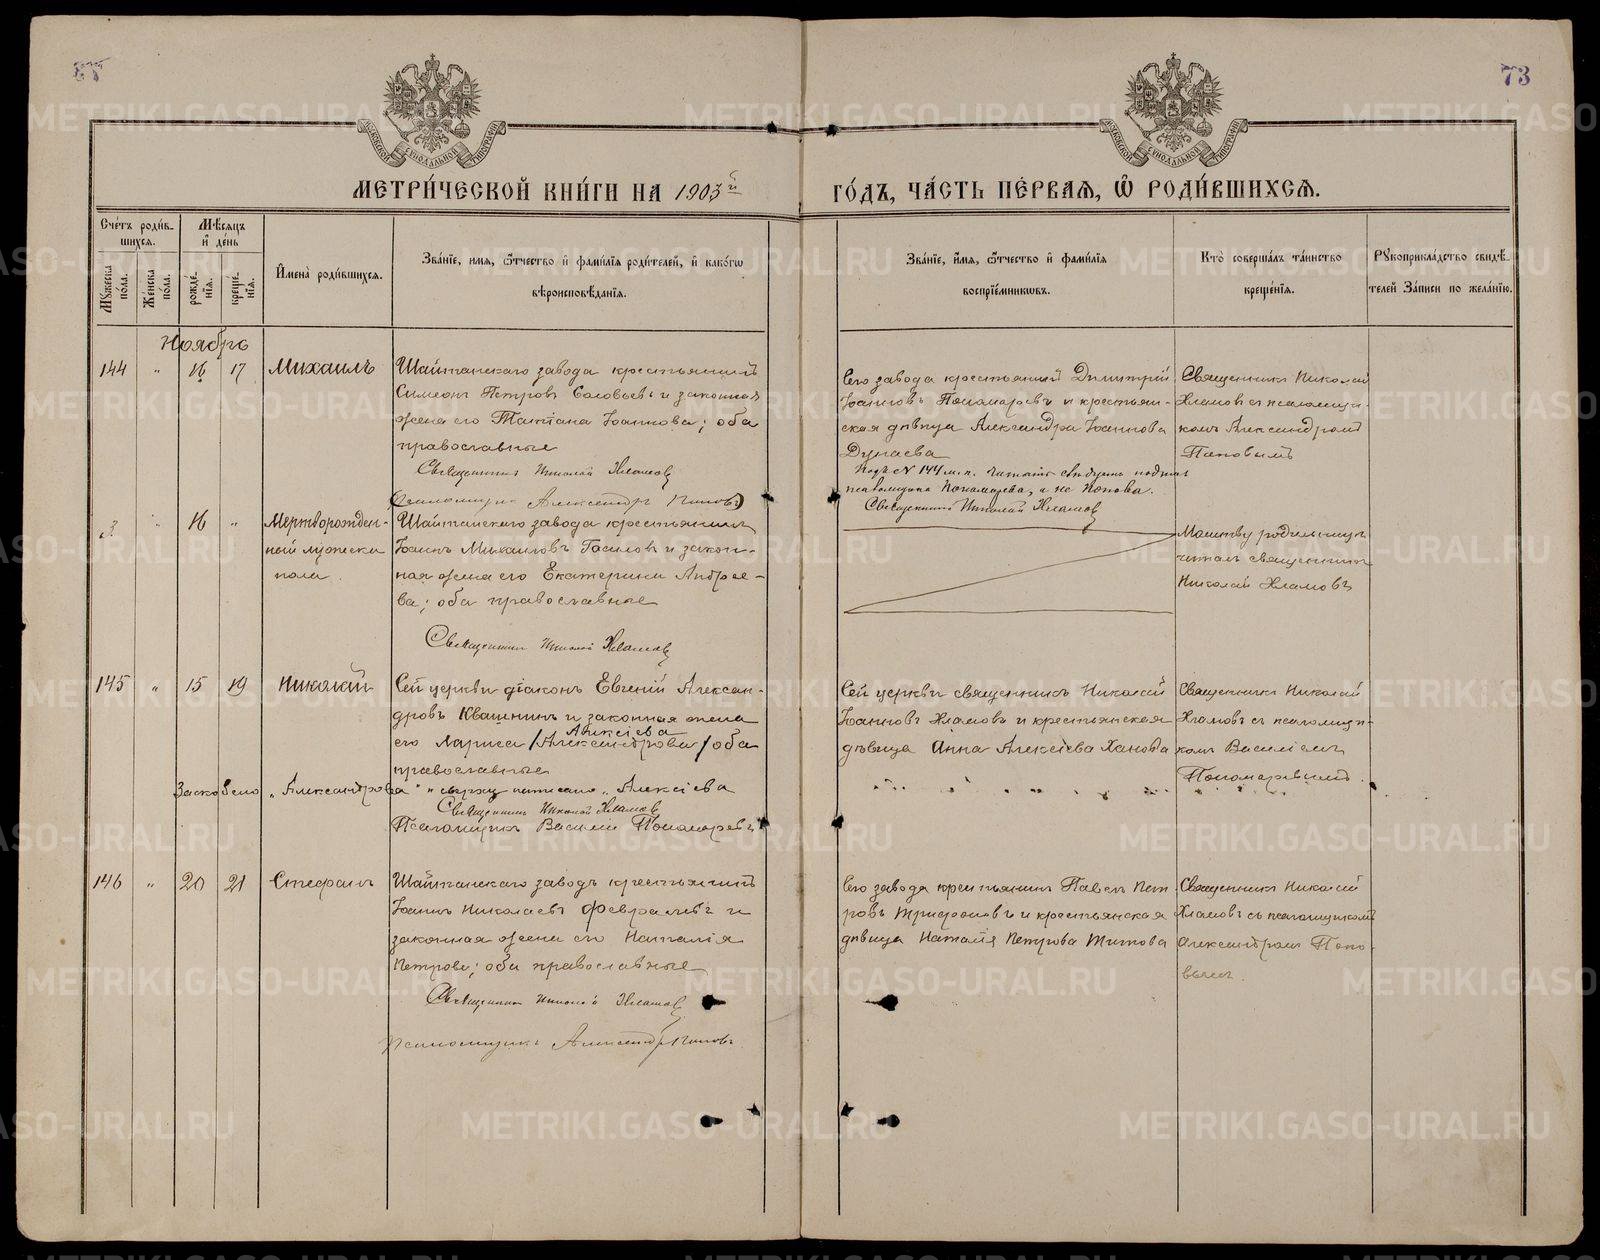 73
МОСКОВСКОЙ СѴНОДАЛЬНОЙ ТИПОГРАФІИ
МОСКОВСКОЙ СѴНОДАЛЬНОЙ ТИПОГРАФІИ
МЕТРИ́ЧЕСКОЙ КНИ́ГИ НА 1903й
ГО́ДЪ, ЧА́СТЬ ПЕ́РВАѦ, Ѽ РОДИ́ВШИХСѦ.
Сче́тъ роди́в-
шихсѧ.
Мꙋ́жеска по́ла.
Же́нска по́ла.
Мѣ́сѧцъ и де́нь
рожде́нїѧ.
креще́нїѧ.
Имена̀ роди́вшихсѧ.
Зва́нїе, имѧ, ѻ҆́тчество и фами́лїѧ роди́телей, и како́гѡ
вѣроисповѣ́данїѧ.
Зва́нїе, и́мѧ, ѻ҆́тчество и фами́лїѧ
воспрїе́мникѡвъ.
Кто̀ соверша́лъ та́инство
креще́нїѧ.
Рꙋкоприкла́дство свидѣ́-
телей за́писи по жела́нїю.
Ноябрь
144 " 16 17 Михаилъ
Шайтанскаго завода крестьянинъ
Симеонъ Петровъ Соловьевъ и законная
жена его Татіана Іоаннова; оба
православные
Священникъ Николай Хламовъ
Псаломщикъ Александръ Поповъ
Сего завода крестьянинъ Димитрій
Іоанновъ Пономаревъ и крестьян-
ская дѣвица Александра Іоаннова
Дунаева
Подъ № 144 м. п. читать
псаломщика Пономарева, а не Попова.
Священникъ Николай Хламовъ
Священникъ Николай
Хламовъ съ псаломщи-
комъ Александромъ
Поповымъ
3 " 16 " Мертворожден-
ный мужеска
пола.
Шайтанскаго завода крестьянинъ
Іоаннъ Михаиловъ и закон-
ная жена его Екатерина Андрее-
ва; оба православные
Священникъ Николай Хламовъ
Молитву родильницѣ
читалъ священникъ
Николай Хламовъ
145 " 15 19 Николай
Сей церкви діаконъ Евгеній Алексан-
дровъ Квашнинъ и законная жена
Алексіева
его Лариса /Александрова/ оба
православные
Заскоблено „Александрова" и сверху написано „Алексіева
Священникъ Николай Хламовъ
Псаломщикъ Василій Пономаревъ
Сей церкви священникъ Николай
Іоанновъ Хламовъ и крестьянская
дѣвица Анна Алексіева Ханова
Священникъ Николай
Хламовъ съ псаломщи-
комъ Василіемъ
Пономаревымъ.
146 " 20 21 Стефанъ
Шайтанскаго заводъ крестьянинъ
Іоаннъ Николаевъ Февралевъ и
законная жена его Наталія
Петрова; оба православные
Священникъ Николай Хламовъ
Псаломщикъ Александръ Поповъ
Сего завода крестьянинъ Павелъ Пет-
ровъ Трифоновъ и крестьянская
дѣвица Наталія Петрова Титова
Священникъ Николай
Хламовъ съ псаломщикомъ
Александромъ Попо-
вымъ.
METRIKI.GASO-URAL.RU